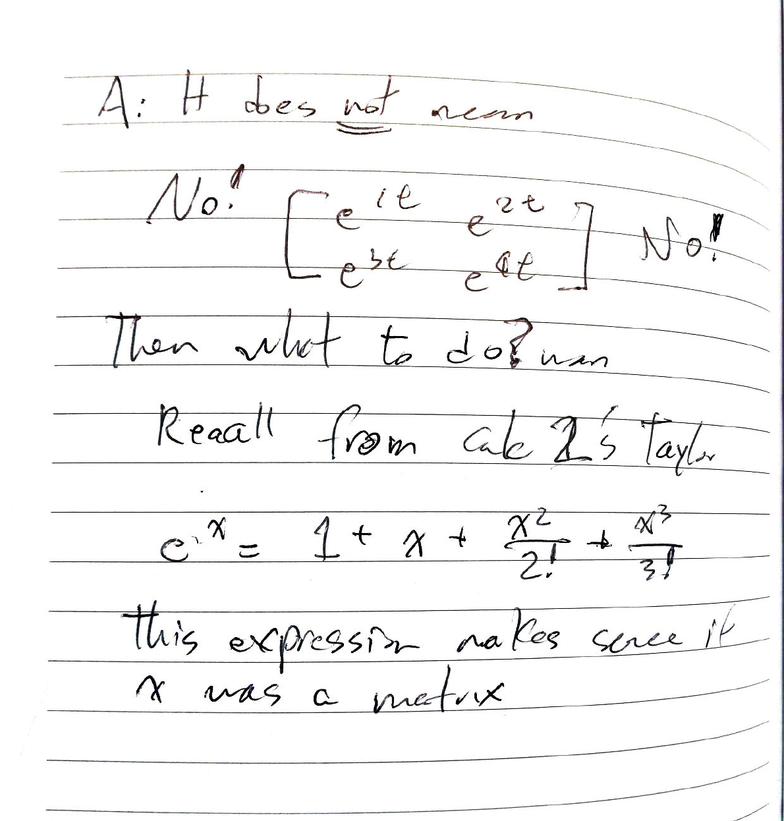 A: It does not mean
No! [ e^{1t} e^{2t} ] No!
[ e^{3t} e^{4t} ]
Then what to do? man
Recall from calc 2's Taylor
e^x = 1 + x + x^2/2! + x^3/3!
This expression makes sence if
x was a matrix